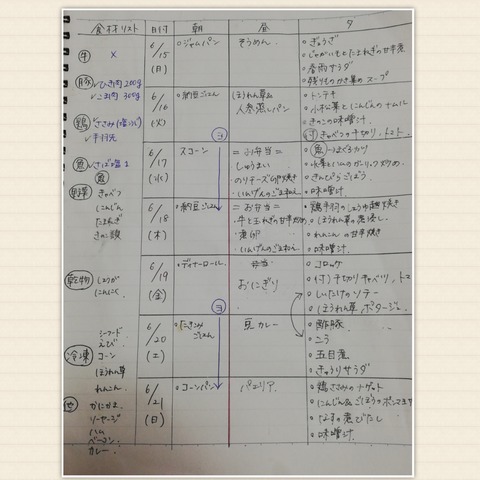 食材リスト 日付 朝 昼 夕
牛 ×
豚 ✓ひき肉200g
✓こま肉 360g
鶏 ✓ささみ
✓手羽先
魚 ✓さば塩
野菜 きゃべつ
にんじん
たまねぎ
きのこ類
乾物 しょうが
にんにく
シーフード
えび
冷凍 コーン
ほうれん草
れんこん
他 かにかま
ソーセージ
ハム
ベーコン
カレー
6/15
(日)
○ジャムパン
そうめん
○ぎょうざ
○じゃがいもとたまねぎの甘辛煮
○春雨サラダ
○残りものかき菜のスープ
6/16
(火)
○納豆ごはん
ほうれん草&
人参蒸しパン
○トンテキ
○小松菜とにんじんのナムル
○きのこの味噌汁
付 きゃべつの千切り、トマト
ヨ
6/17
(水)
スコーン
=お弁当=
しゅうまい
のりチーズ卵焼き
いんげんのごまあえ
○魚
○水菜とハムのガーリック炒め
○きんぴらごぼう
○味噌汁
6/18
(木)
○納豆ごはん
=お弁当=
・牛と玉ねぎの甘辛炒め
・煮卵
・いんげんのごまあえ
○鶏手羽のしょうゆ麹焼き
○ほうれん草の煮浸し
○れんこんの甘辛焼き
○味噌汁
6/19
(金)
○ディナーロール
弁当
おにぎり
○コロッケ
○(付)千切りキャベツ、トマト
○しいたけのソテー
○ほうれん草ポタージュ
ヨ
6/20
(土)
○たきこみ
ごはん
豆カレー
○酢豚
○五目煮
○きゅうりサラダ
6/21
(日)
○コーンパン
パエリア
○鶏ささみのナゲット
○にんじん&ごぼうのポンズマヨ
○なすの煮びたし
○味噌汁